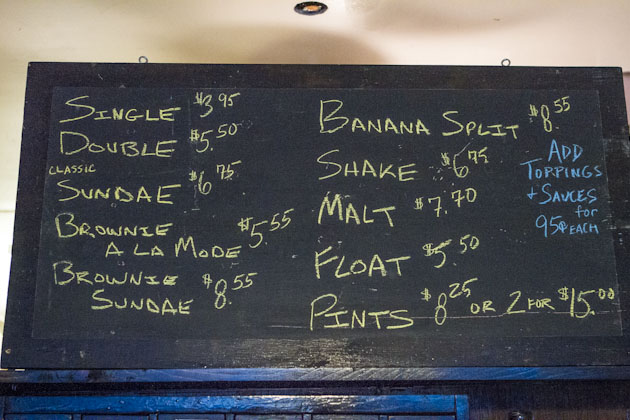 SINGLE $3.95
DOUBLE $5.50
CLASSIC
SUNDAE $6.75
BROWNIE
A LA MODE $5.55
BROWNIE
SUNDAE $8.55
BANANA SPLIT $8.55
SHAKE $6.75
MALT $7.70
FLOAT $5.50
PINTS $8.25 OR 2 FOR $15.00
ADD
TOPPINGS
+ SAUCES
for
95¢ EACH